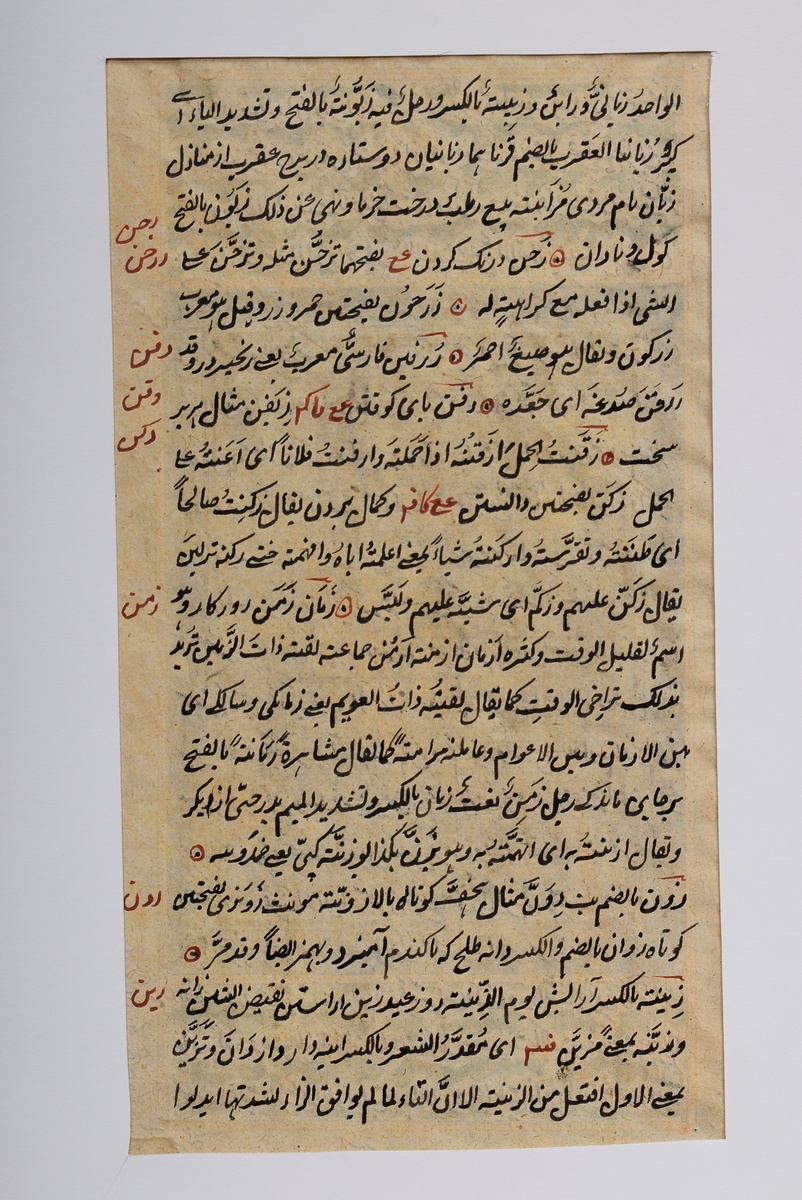 الواحد زبانیٌّ و زابنٌ و زِبنیته بالکسر ورجلٌ فیه زَبُّونةٌ بالفتح وتشدید الباء ای
کبرٌ زُبانیا العَقرب بالضم قرناهما زبانیان دو ستاره در برج عقرب از منازل
زَبّان نام مردی مُزابَنته بیع رطب بر درخت خرما ونهی عن ذلک زَبُون بالفتح
کول و نادان زَحن درنک کردن عع بفتحهما تزحُّن مثله وتزحَّن علی
الشی اذا فعله مع کراهیةٍ له زَرَجون بفتحتین خمر و زر وقیل هو معرب
زرکون ویقال هو صبیغٌ احمر زرفین فارسیٌّ معرب یعنے زنجیر در وقد
زرفَنَ صُدغَه ای جَعَّده زفن بای کوفتن عع ماکم زِیَفْن مثال هزبر
سخت زَقَنتُ الحمل ازقُنُه اذا حَمَلته وازقنتُ فلاناً ای اَعَنتُه علی
الحمل زَکَن بفتحتین دانستن عع کافم وکمال بردن یقال زکِنتُ صالحاً
ای ظَنَنتُه وتفرَّسته وازکنتُه شیاءً یعنے اعلمتُه ایاه وافهمته حتے زکنه تزلین
یقال زکّن علیهم وزکّم ای شبّه علیهم ولبّس زَمان زَمَن روزکار وهو
اسمٌ لقلیل الوقت وکثیره اَزمان ازمنته ازمُن جماعته لقیته ذات الزُّمین تُرید
بذلک تراخی الوقتِ کما یقال لقیتُه ذاتَ العویم یعنے زمانکی وسالکے ای
بین الازمان وبین الاعوام وعامله مزامنتهً کما یقال مشاهرةً زَمانته بالفتح
برجای ماندکے رجل زَمِنٌ نعت زمان بالکسر وتشدید المیم
ویقال ازننتُه به ای اتهمَّته به وهو یُزَنُّ بکذا ابو زنَّته کپیّ یعنے حمدونه
زَون بالضم بت زِوَنَّ مثال خِفَّت کوتاه بالا زونّته مونث زَونزی بفتحتین
کوتاه زوان بالضم والکسر دانه طلح که با کندم آمیزد وبهمز ایضاً وقد مرَّ
زِینته بالکسر آرایش یوم الزِّینته روز عید زین اراستن نقیض الشین زانه
وزیَّنه بمعنیً مُزیَّن فسم ای مُقدَّر الشعر وبالکسر اینه دار وازدَانَ وتَزَیَّن
بمعنے الاول افتعل من الزینته الا انَّ التاء لما لم یوافق الزاء لشدتها ابدلوا
زحن
زرجن
زفن
زقن
زکن
زمن
زون
زین